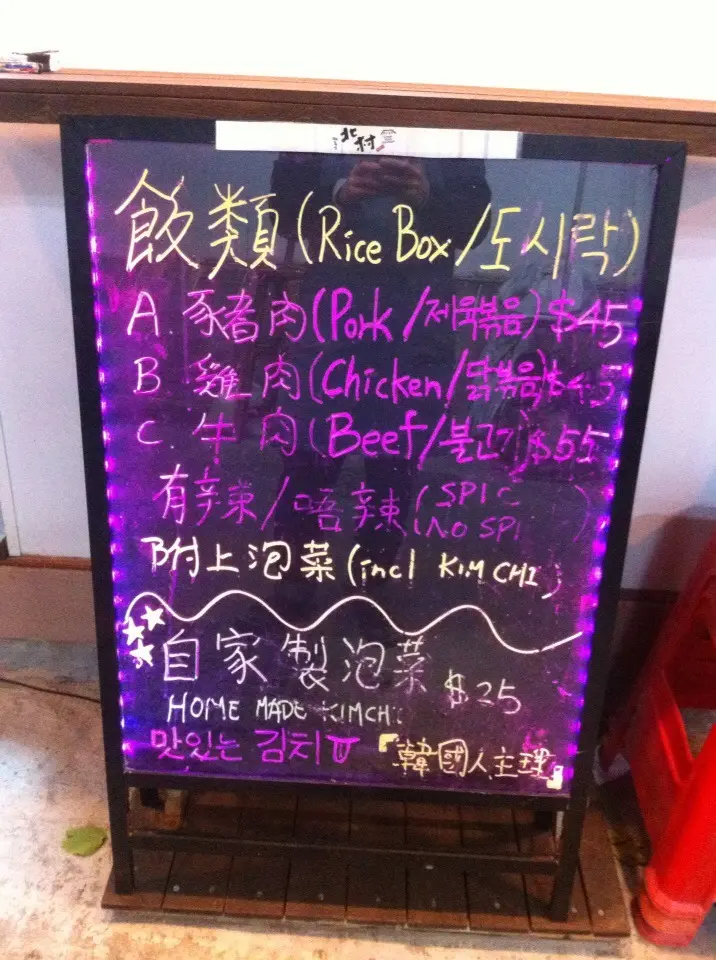 北村
飯類(Rice Box/도시락)
A. 豬肉(Pork/제육볶음)$45
B 雞肉(Chicken/닭볶음)$45
C. 牛肉(Beef/불고기)$55
有辣/唔辣(SPIC
NO SPI )
附上泡菜(incl KIMCHI)
自家製泡菜 $25
HOME MADE KIMCHI
맛있는 김치
『韓國人主理』